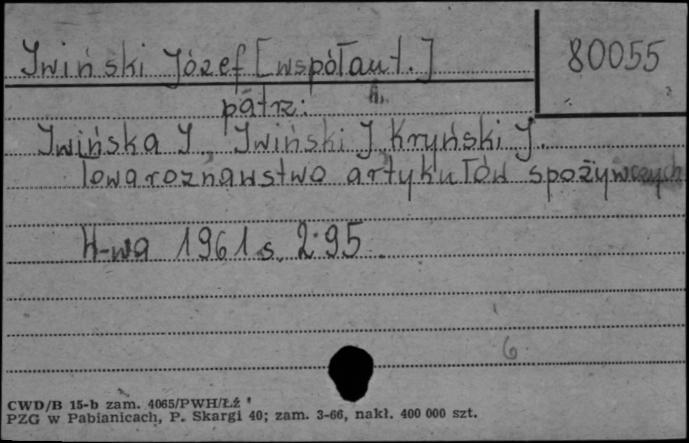 Iwiński Józef [współaut.]
80055
patrz:
Iwińska I., Iwiński J., Kryński J.
Towaroznawstwo artykułów spożywczych
W-wa 1961 s. 295.
6
CWD/B 15-b zam. 4065/PWH/Łź
PZG w Pabianicach, P. Skargi 40; zam. 3-66, nakł. 400 000 szt.